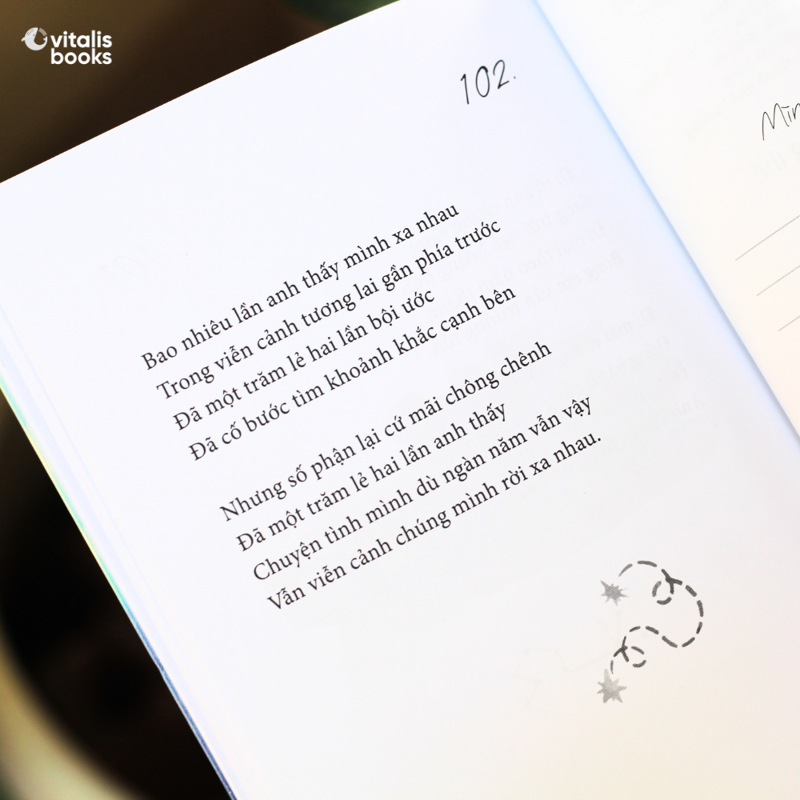 vitalis
books
102.
Bao nhiêu lần anh thấy mình xa nhau
Trong viễn cảnh tương lai gần phía trước
Đã một trăm lẻ hai lần bội ước
Đã cố bước tìm khoảnh khắc cạnh bên
Nhưng số phận lại cứ mãi chông chênh
Đã một trăm lẻ hai lần anh thấy
Chuyện tình mình dù ngàn năm vẫn vậy
Vẫn viễn cảnh chúng mình rời xa nhau.